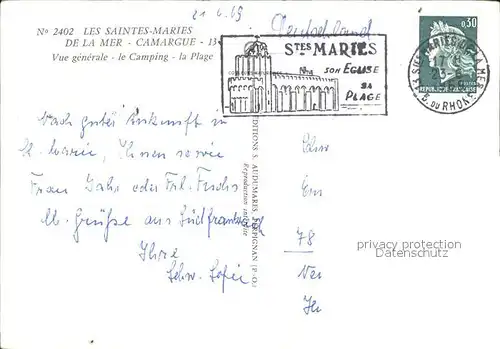 21.6.69
Deutschland
No 2402 LES SAINTES-MARIES
DE LA MER - CAMARGUE - 13
Vue générale - le Camping - la Plage
STES MARIES
SON EGLISE
SA
PLAGE
0,30
REPUBLIQUE FRANÇAISE
13 STES MARIES DE LA MER
B. DU RHONE
EDITIONS S. AUDUMARES PERPIGNAN (P.-O.)
Reproduction interdite
Nach guter Ankunft in
St. Marie, Ihnen sowie
Frau Jahr oder Frl. Fuchs
lb. Grüße aus Südfrankreich
Ihre
Schw.
Schw
Em
78
privacy protection
Datenschutz